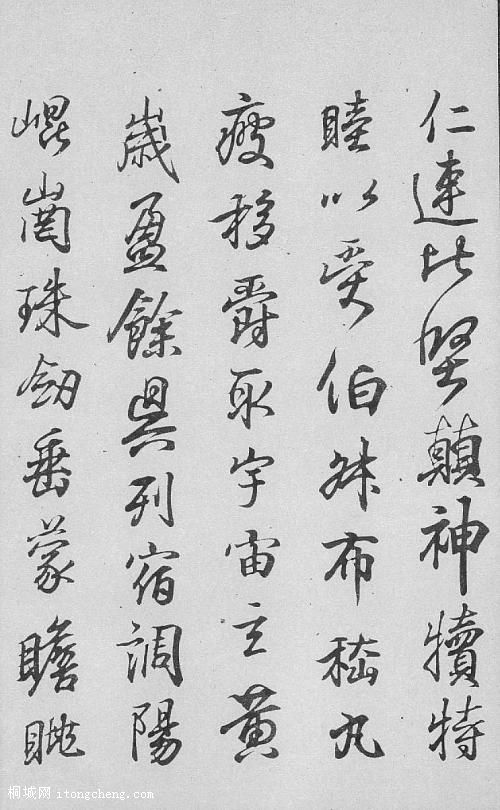 仁連比堅顛神犢特
睦以受伯叔布嵇丸
疲移爵取宇宙玄黄
歲盈餘昃列宿調陽
崐崗珠劒垂蒙瞻眺
桐城网 itongcheng.com